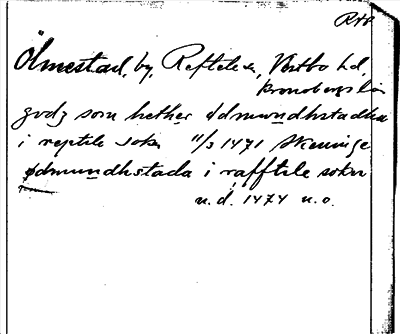 RAP
Ölmestad, by, Reftele sn, Västbo hd,
Kronobergs län
godz som hether ødmundhstadha
i reptile sokn 11/3 1471 Skenninge
ødmundhstada i räfftile sokn
u.d. 1474 u.o.